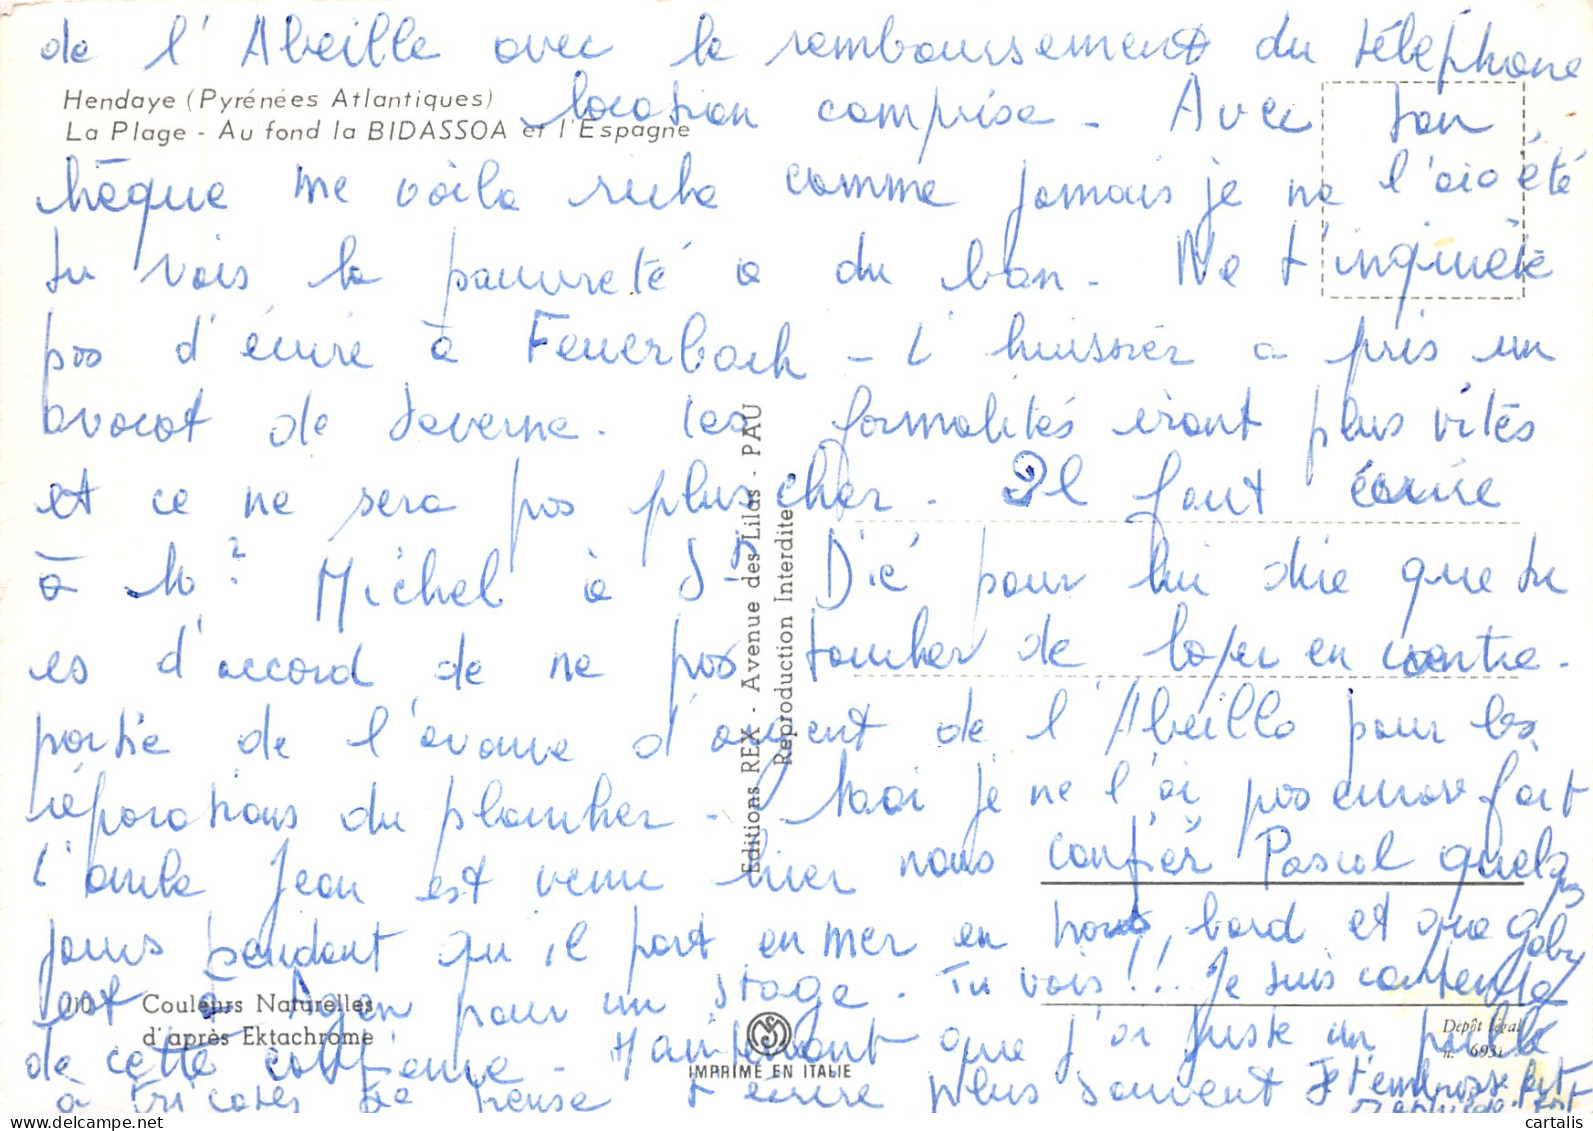 de l'Abeille avec le remboursement du téléphone
Hendaye (Pyrénées Atlantiques)
La Plage - Au fond la BIDASSOA et l'Espagne
location comprise - Avec ton
chèque me voila riche comme jamais je ne l'ai été
tu vois la pauvreté a du bon - Ne t'inquiète
pas d'écrire à Feuerbach - L'huissier a pris un
avocat de Saverne. Les formalités iront plus vites
et ce ne sera pas plus cher. Il faut écrire
à Me Michel à St Dié pour lui dire que tu
es d'accord de ne pas toucher de loyer en contre-
partie de l'avance d'argent de l'Abeille pour les
réparations du plombier - Moi je ne l'ai pas encore fait
L'oncle Jean est venu hier nous confier Pascal quelques
jours pendant qu'il part en mer en bord et que Gaby
est à Agen pour un stage. Tu vois!!. Je suis contente
de cette confiance - Maintenant que j'ai juste un
à tricoter je pense t'écrire plus souvent Je t'embrasse fort
fort
Editions REX - Avenue des Lilas - PAU
Reproduction Interdite
110 Couleurs Naturelles
d'après Ektachrome
IMPRIMÉ EN ITALIE
Dépôt légal
n. 6931
cartalis